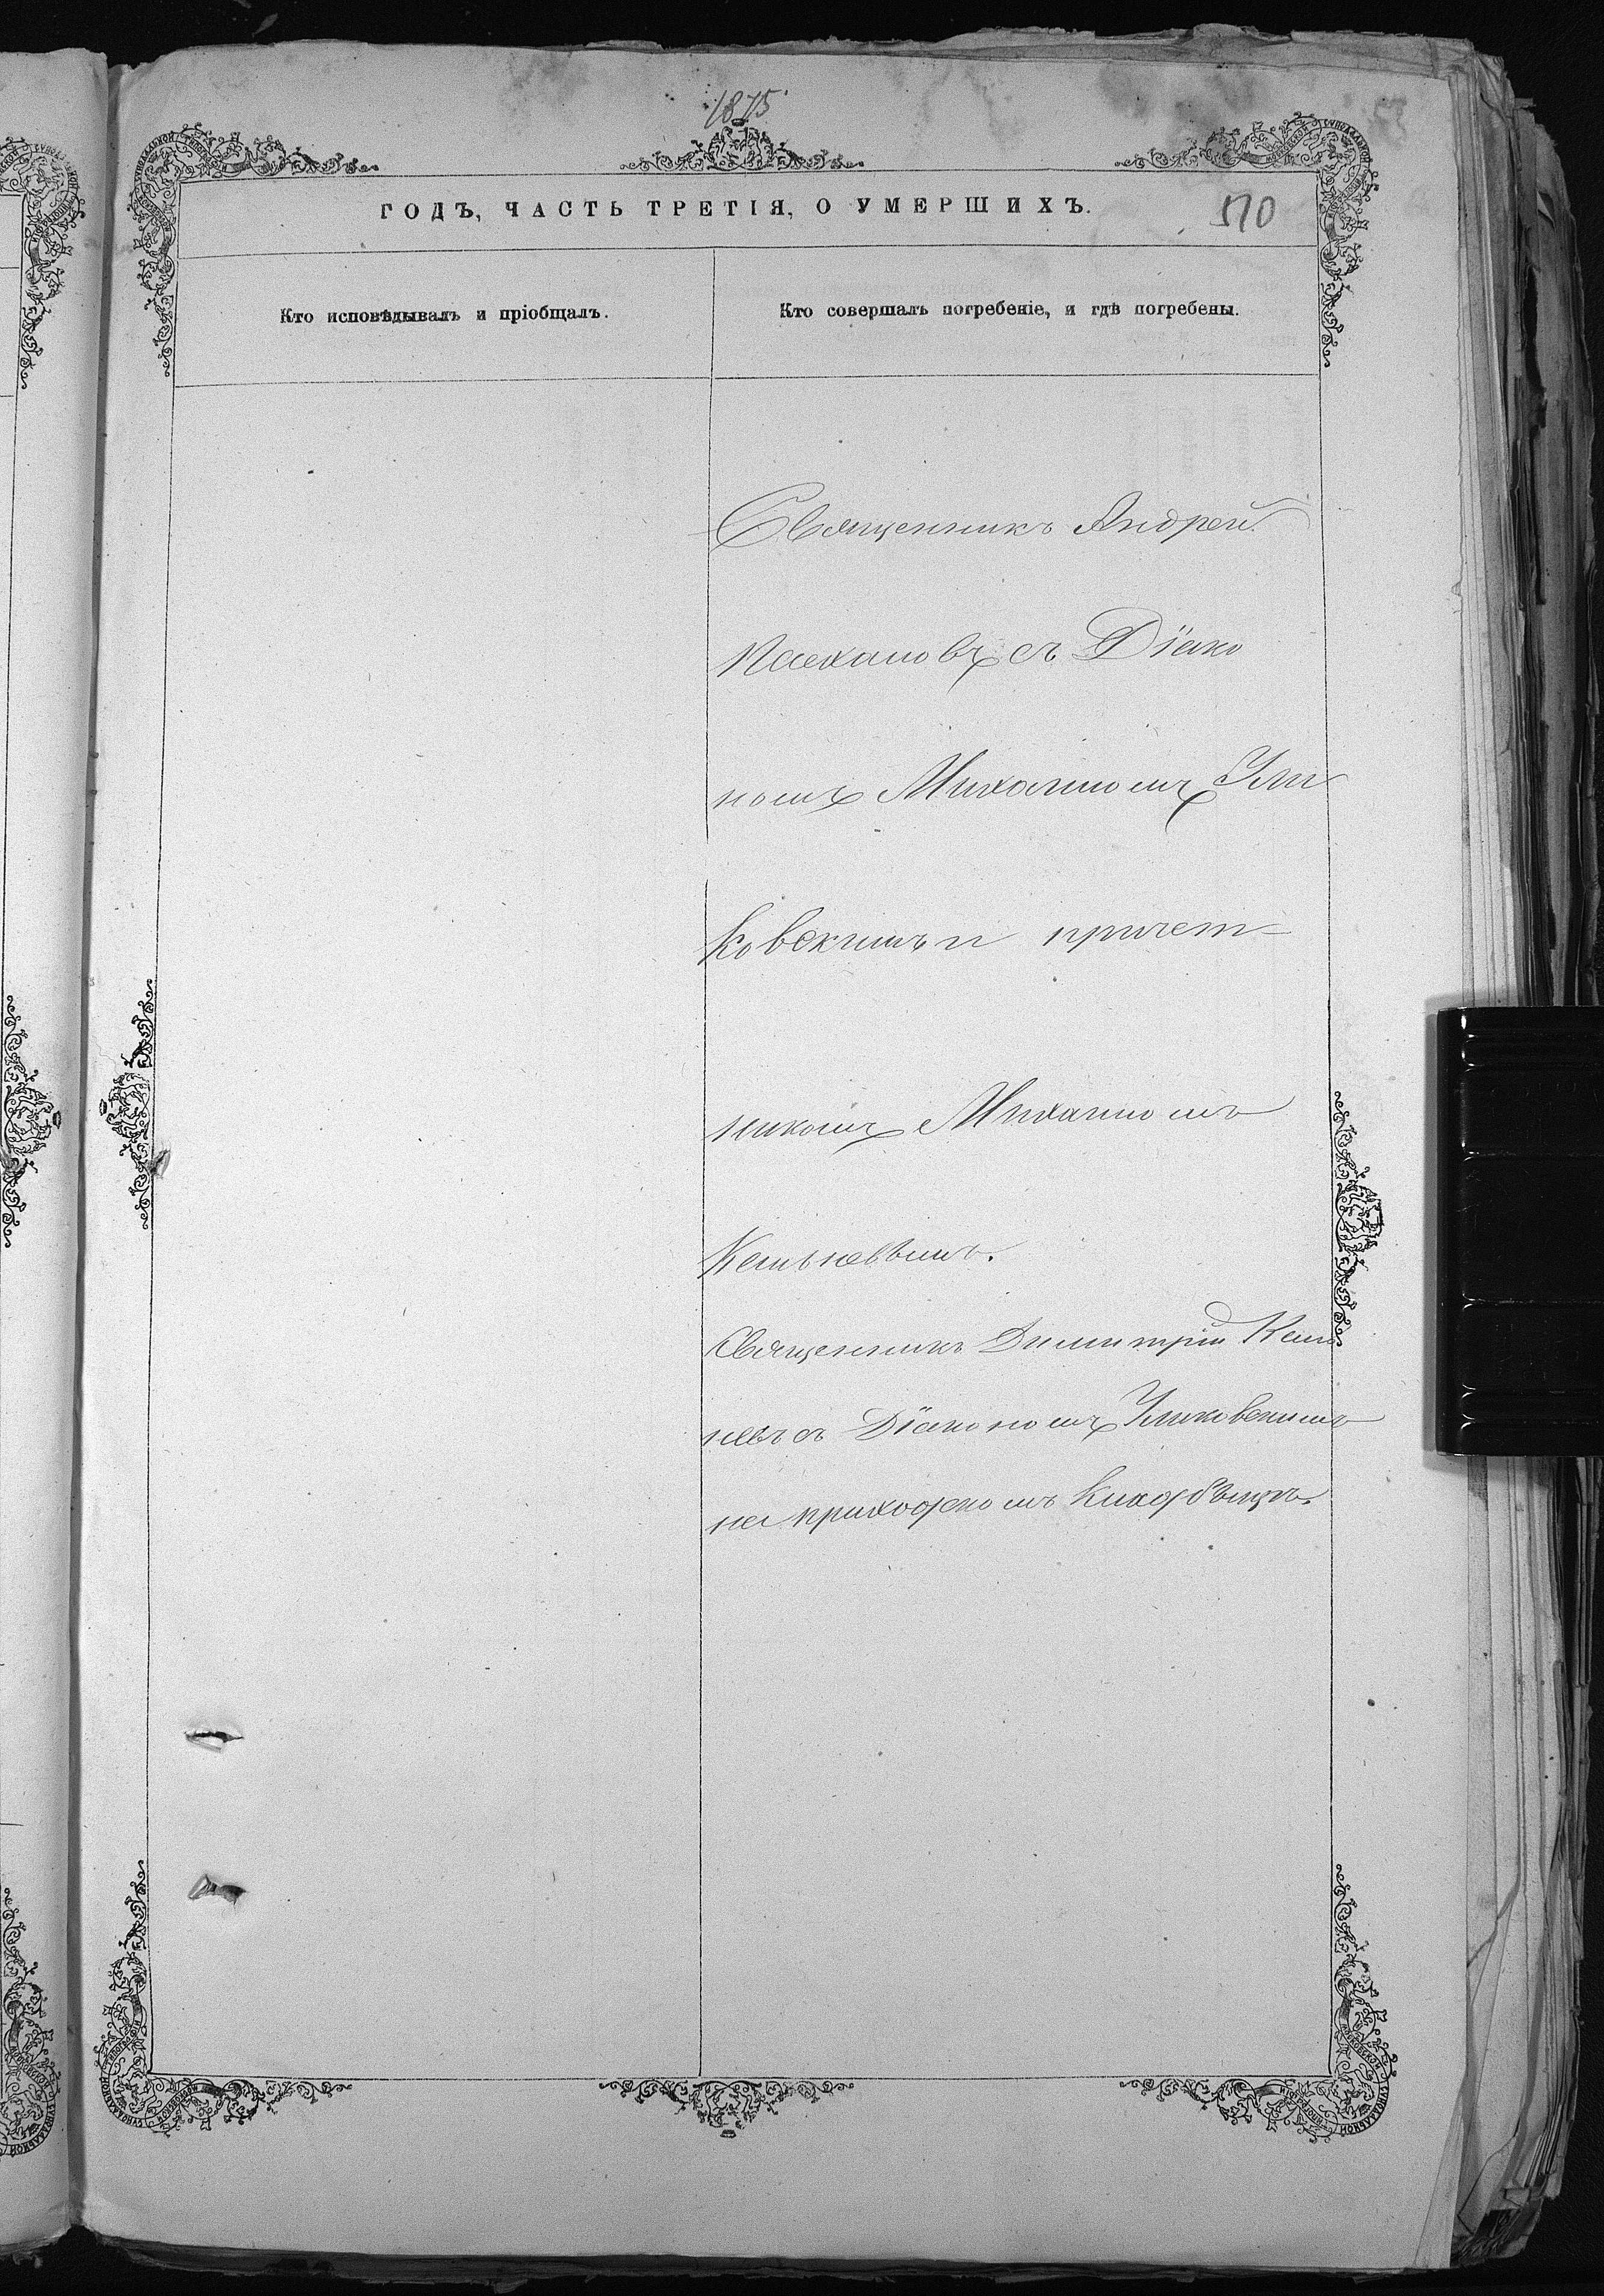 1875
ГОДЪ, ЧАСТЬ ТРЕТІЯ, О УМЕРШИХЪ.
510
Кто исповѣдывалъ и пріобщалъ.
Кто совершалъ погребеніе, и гдѣ погребены.
Священникъ Андрей
съ Діако
номъ Михаиломъ Ули
ковскимъ и причет-
никомъ Михаиломъ
Священникъ Димитрій
съ Діакономъ Уликовскимъ
на приходскомъ кладбищѣ.